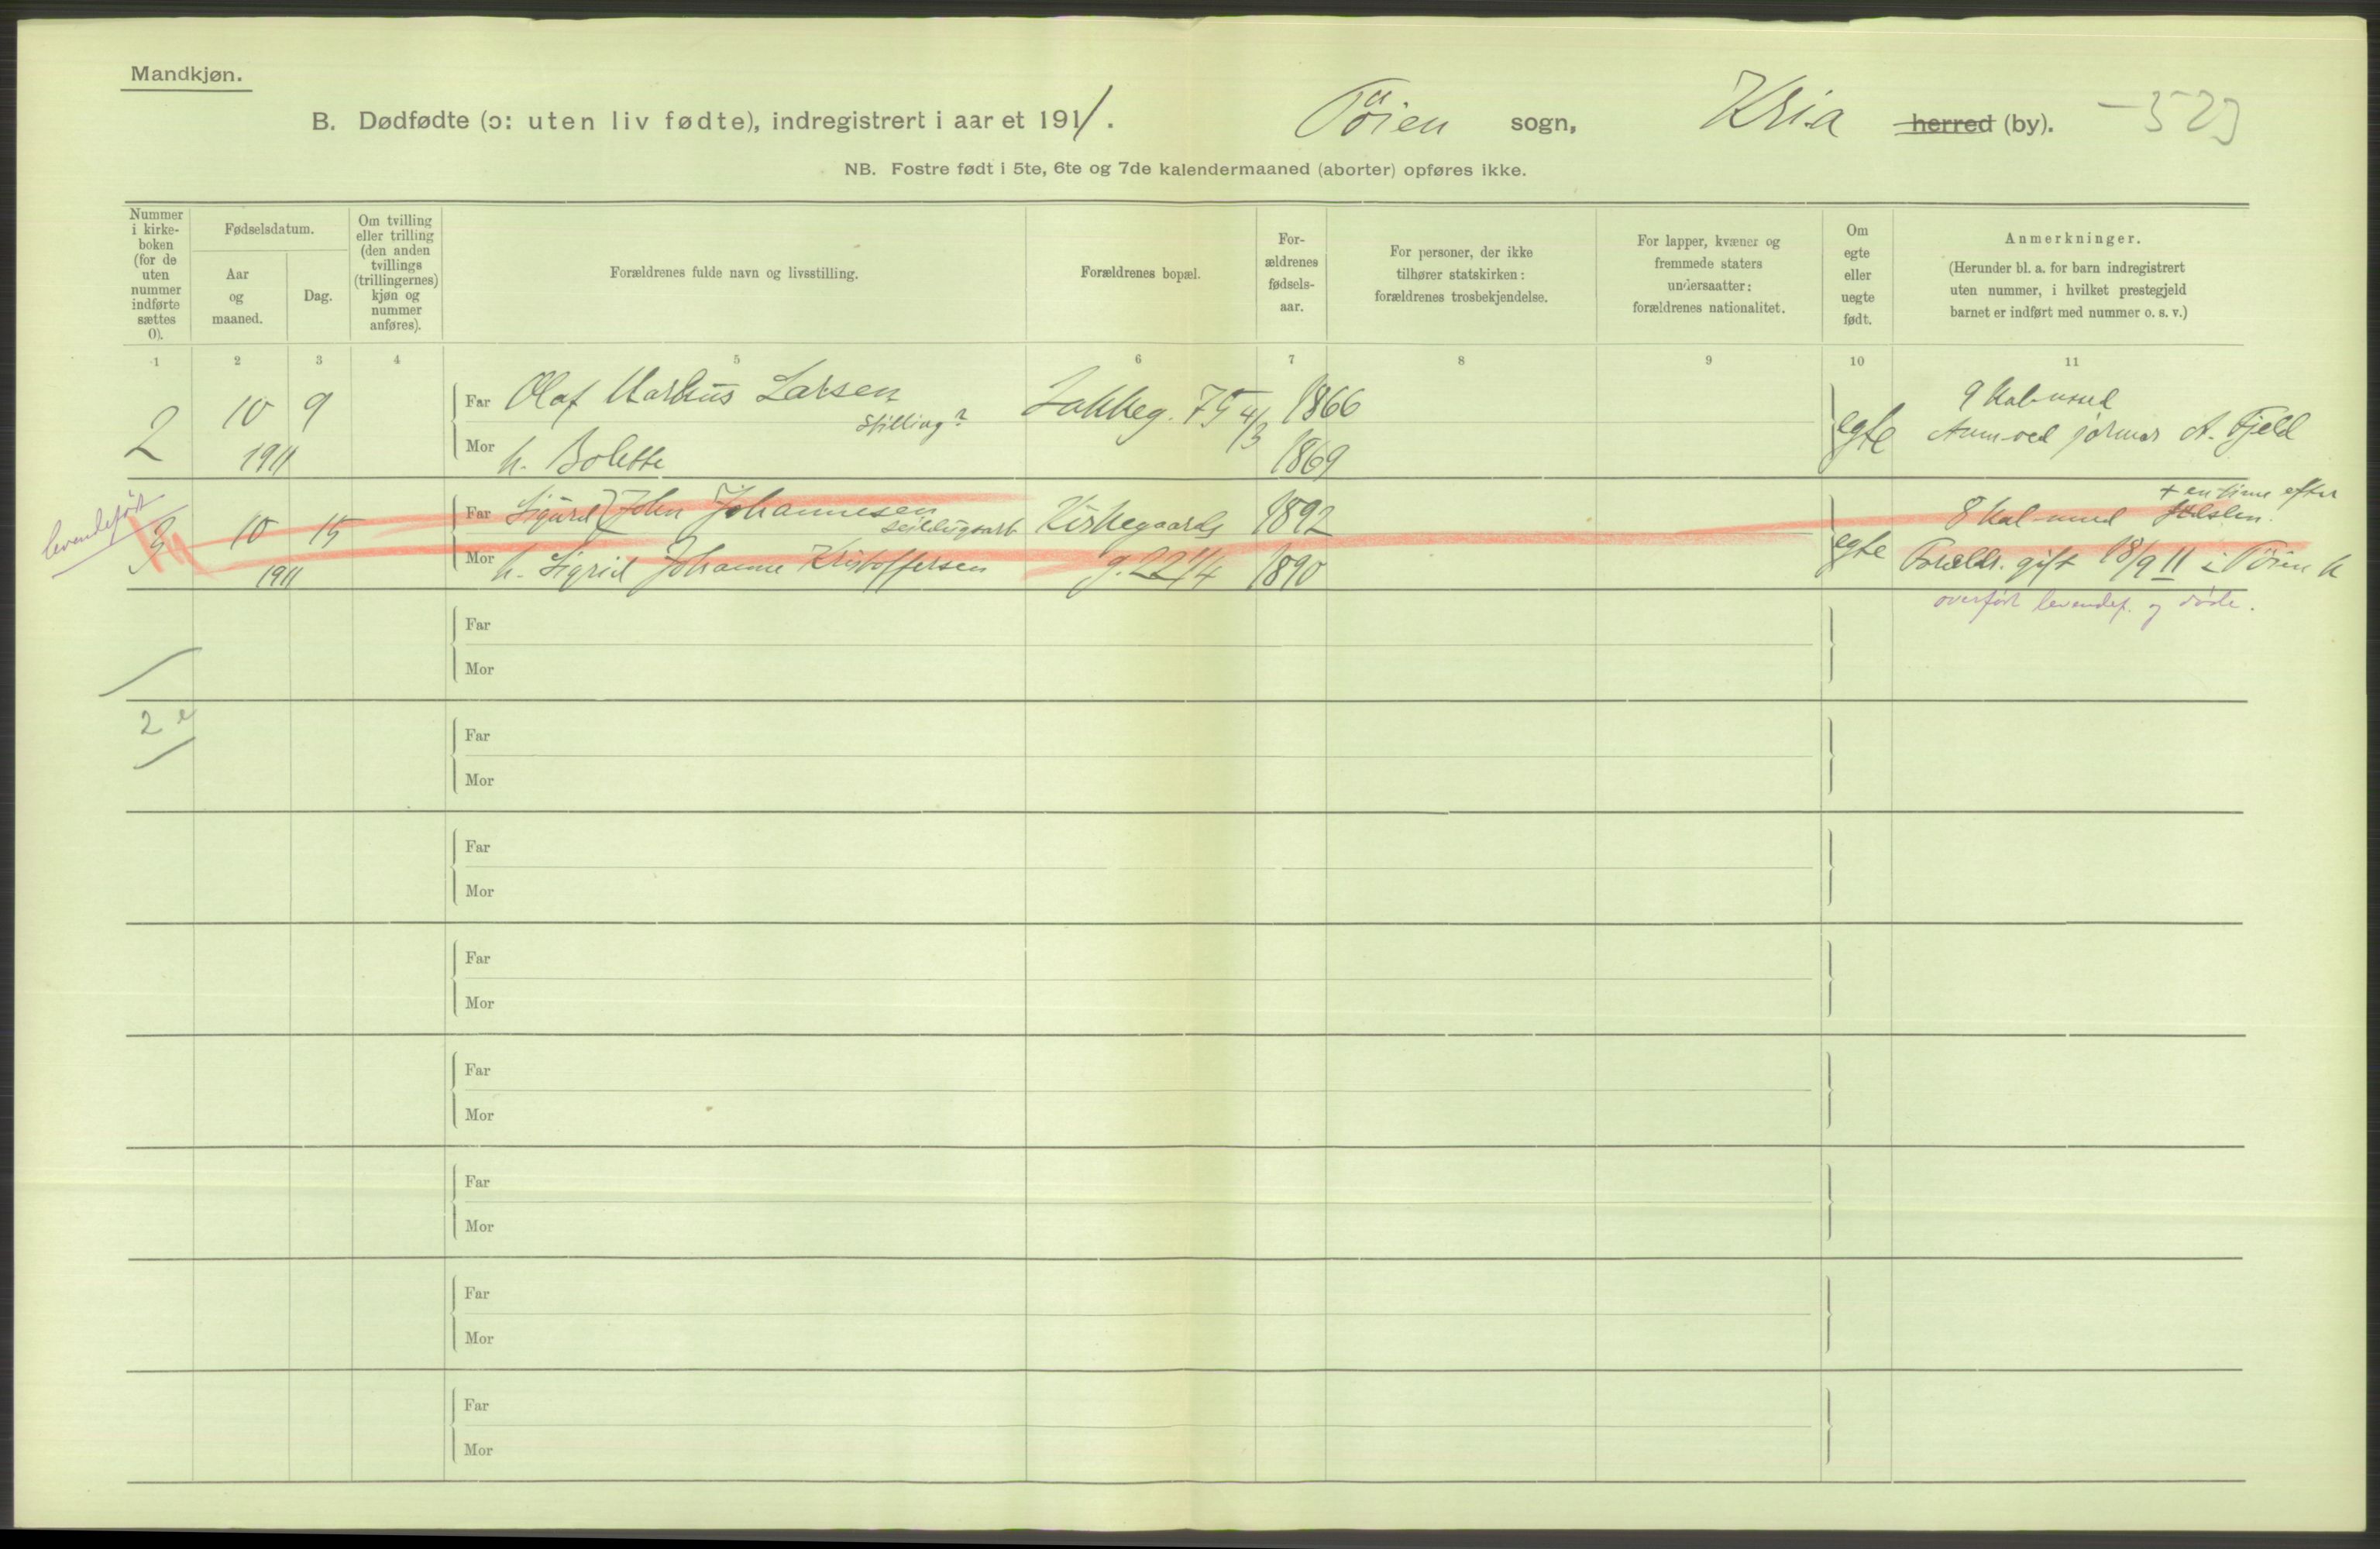 Mandkjøn.
B. Dødfødte (ɔ: uten liv fødte), indregistrert i aaret 1911. Töien sogn, Kria herred (by). —523
NB. Fostre født i 5te, 6te og 7de kalendermaaned (aborter) opføres ikke.
Nummer
i kirke-
boken
(for de
uten
nummer
indførte
sættes
0).
Fødselsdatum.
Aar
og
maaned.
Dag.
Om tvilling
eller trilling
(den anden
tvillings
(trillingernes)
kjøn og
nummer
anføres).
Forældrenes fulde navn og livsstilling.
Forældrenes bopæl.
For-
ældrenes
fødsels-
aar.
For personer, der ikke
tilhører statskirken:
forældrenes trosbekjendelse.
For lapper, kvæner og
fremmede staters
undersaatter:
forældrenes nationalitet.
Om
egte
eller
uegte
født.
Anmerkninger.
(Herunder bl. a. for barn indregistrert
uten nummer, i hvilket prestegjeld
barnet er indført med nummer o. s. v.)
1 2 3 4 5 6 7 8 9 10 11
2 10 9 Far Olaf Markus Larsen Jakkeg. 75 4/3 1866 9 Kal mnd
stilling?
1911 Mor h. Bolette 1869 egte Anm. ved jormor A. Fjeld
levendefødt
3 10 15 Far Sigurd John Johannesen Kirkegaards 1892 8 Kal mnd + en time efter
fødslen.
1911 Mor h. Sigrid Johanne Kristoffersen g. 22 4 1890 egte Foreldr. gift 18/9 11 i Töien K
overført levendef. og døde.
Far
Mor
2 e
Far
Mor
Far
Mor
Far
Mor
Far
Mor
Far
Mor
Far
Mor
Far
Mor